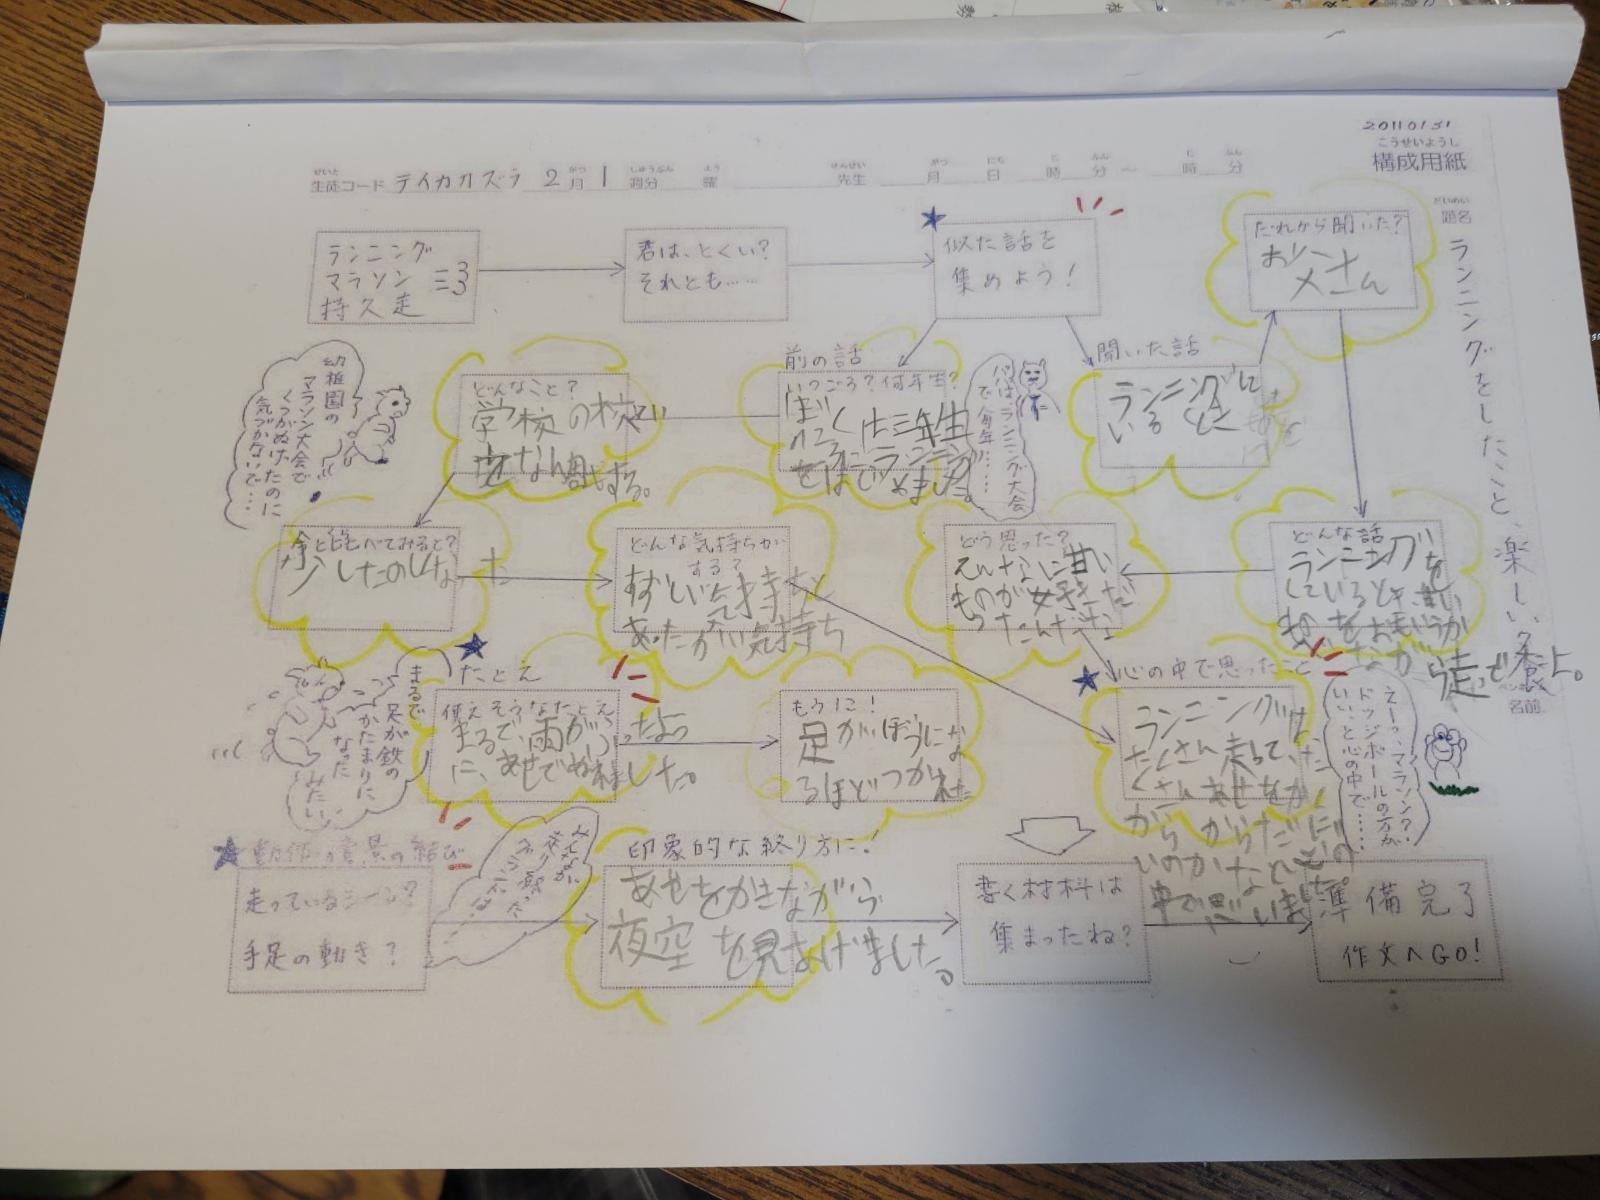 20110131
こうせいようし
構成用紙
生徒コード テイカカズラ 2月1週分 曜 先生 月 日 時 分～ 時 分
だいめい
題名
ランニングをしたこと、楽しい
名前
ランニング
マラソン
持久走
君は、とくい?
それとも……
似た話を
集めよう!
だれから聞いた?
お父さん
幼稚園の
マラソン大会で
くつがぬげたのに
気づかないで…
どんなこと?
学校の校てい
を なん周もする。
前の話
いつごろ?何年生?
ぼくは三年生
ごろにランニング
をはじめました。
パパはランニング大会
で毎年……
聞いた話
ランニングに
いるとこ
今と比べてみると?
少したのしくなった
どんな気持ちが
する?
すずしい気持ちと
あったかい気持ち
どう思った?
そんなに甘い
ものが好きだ
ったんだな
どんな話
ランニングを
しているとき、甘い
ものをおもいうか
べながら走って
たとえ
使えそうなたとえ
まるで、雨がふったよう
に、あせでぬれました。
まるで
足が鉄の
かたまりに
なった
みたい
もう1こ!
足がぼうにな
るほどつかれた
心の中で思ったこと
ランニングは、
たくさん走って、た
くさんあせをかく
から からだにい
いのかなと心の
中で思いました。
えーっ、マラソン?
ドッジボールの方が
いい、と心の中で……
動作や情景の結び
走っているシーン?
手足の動き?
印象的な終り方に!
あせをかきながら
夜空を見あげました。
書く材料は
集まったね?
準備完了
作文へGO!